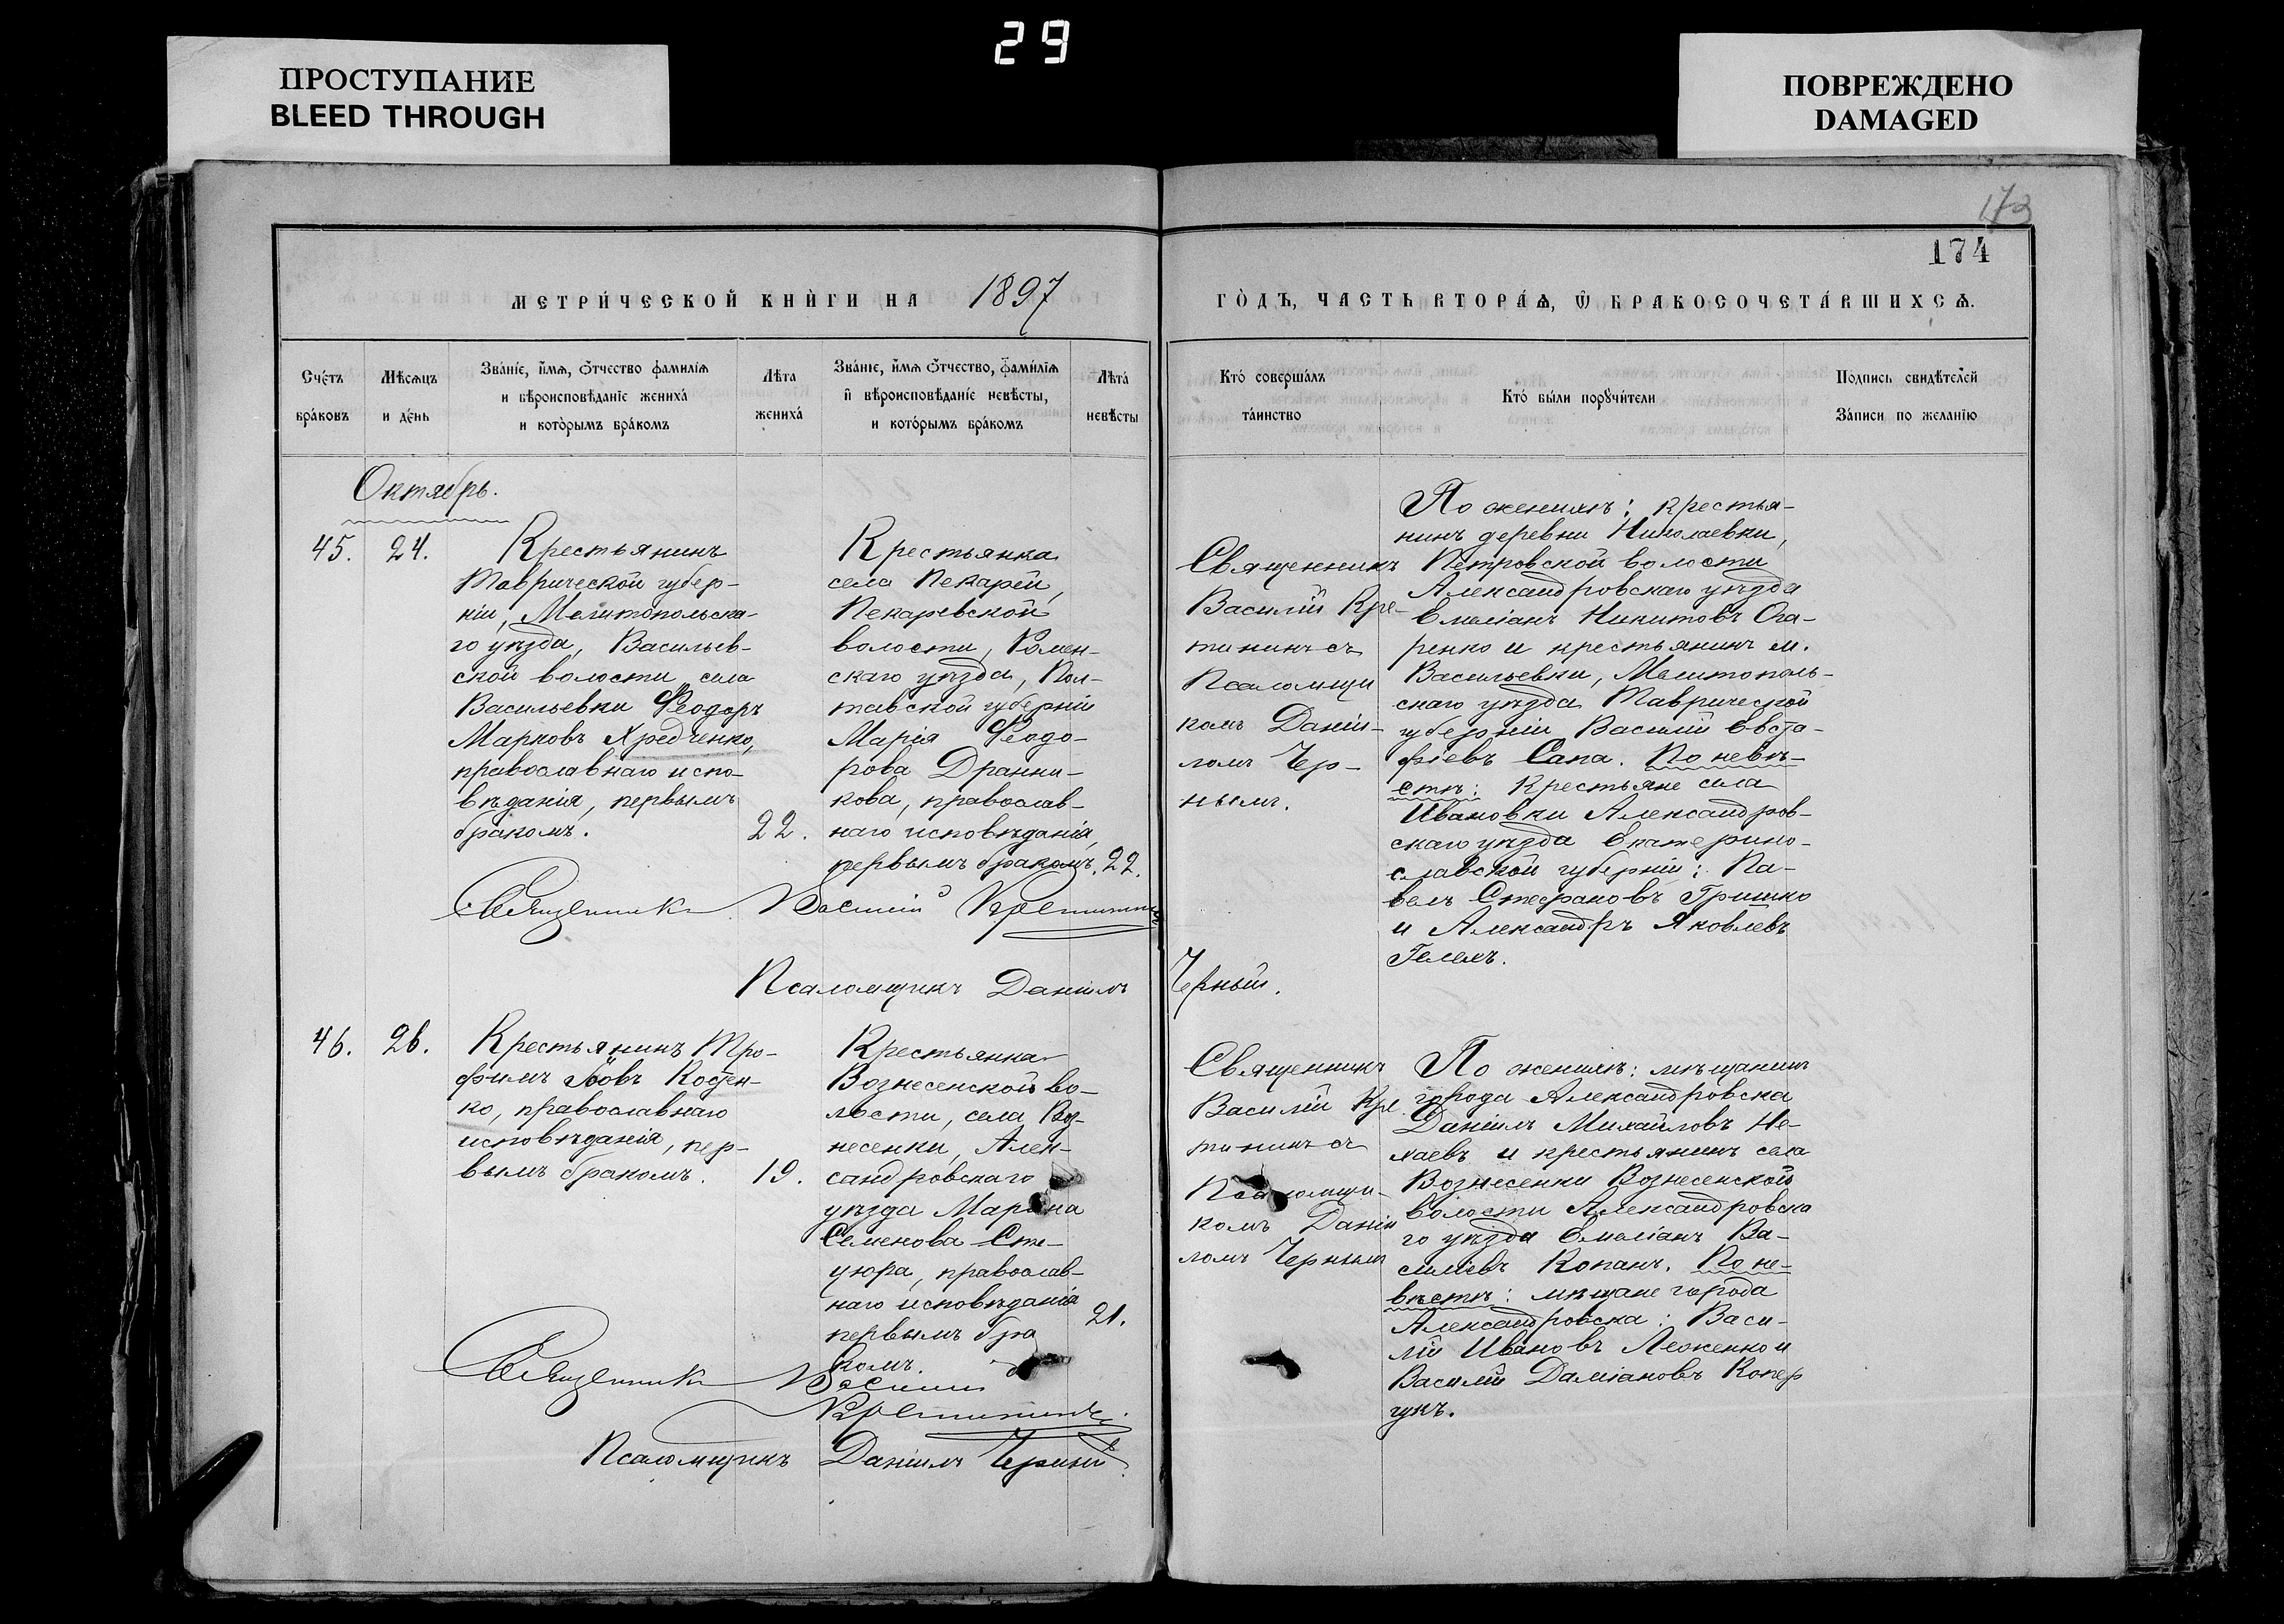 29
ПРОСТУПАНИЕ
BLEED THROUGH
ПОВРЕЖДЕНО
DAMAGED
173
174
МЕТРИ́ЧЕСКОЙ КНИ́ГИ НА 1897
ГО́ДЪ, ЧАСТЬ ВТОРА́Ѧ, Ѽ БРАКОСОЧЕТА́ВШИХСѦ.
Сче́тъ
бра́ковъ
Мѣсѧцъ
и де́нь
Зва́нїе, и́мѧ, ѻ́тчество фами́лїѧ
и вѣроисповѣ́данїе жениха́
и кото́рымъ бра́комъ
Лѣта
жениха́
Зва́нїе, и́мѧ ѻ́тчество, фами́лїѧ
и҆ вѣроисповѣ́данїе невѣ́сты,
и кото́рымъ бра́комъ
Лѣта́
невѣ́сты
Кто́ соверша́лъ
та́инство
Кто́ бы́ли порꙋчи́тели
По́дпись свидѣ́телей
За́писи по жела́нїю
Октябрь.
45.
24.
Крестьянинъ
Таврической губер-
ніи, Мелитопольска-
го уѣзда, Васильев-
ской волости села
Васильевки Ѳеодоръ
Марковъ Хредченко,
православнаго испо-
вѣданія, первымъ
бракомъ.
22.
Крестьянка
села Пекарей,
Пекаревской
волости, Ромен-
скаго уѣзда, Пол-
тавской губерніи
Марія Ѳеодо-
рова Дранни-
кова, православ-
наго исповѣданія,
первымъ бракомъ.
22.
Священникъ
Василій Кре-
тининъ съ
Псаломщи
комъ Даніи-
ломъ Чер-
нымъ.
По женихѣ: крестья-
нинъ деревни Николаевки,
Петровской волости
Александровскаго уѣзда
Емеліанъ Никитовъ Ога-
ренко и крестьянинъ м.
Васильевки, Мелитополь-
скаго уѣзда Таврической
губерніи Василій Евста-
фіевъ Сапа. По невѣ-
стѣ: Крестьяне села
Ивановки Александров-
скаго уѣзда Екатерино-
славской губерніи: Па-
велъ Стефановъ Гришко
и Александръ Яковлевъ
Гелехъ.
Священникъ Василій Кретининъ
Псаломщикъ Даніилъ Черный.
46.
26.
Крестьянинъ Тро-
фимъ Костен-
ко, православнаго
исповѣданія, пер-
вымъ бракомъ.
19.
Крестьянка
Вознесенской во-
лости, села Воз-
несенки, Алек-
сандровскаго
уѣзда Марина
Семенова Сте-
цюра, православ-
наго исповѣданія
первымъ бра
комъ.
21.
Священникъ
Василій Кре
тининъ съ
Псаломщи-
комъ Даніи
ломъ Чернымъ
По женихѣ: мѣщанинъ
города Александровска
Даніилъ Михайловъ Не-
хаевъ и крестьянинъ села
Вознесенки Вознесенской
волости Александровска
го уѣзда Емеліанъ Ва-
силіевъ Копанъ. По не-
вѣстѣ: мѣщане города
Александровска: Васи-
лій Ивановъ Леженко и
Василій Даміановъ Копер
гукъ.
Священникъ Василій
Кретининъ.
Псаломщикъ Даніилъ Черный